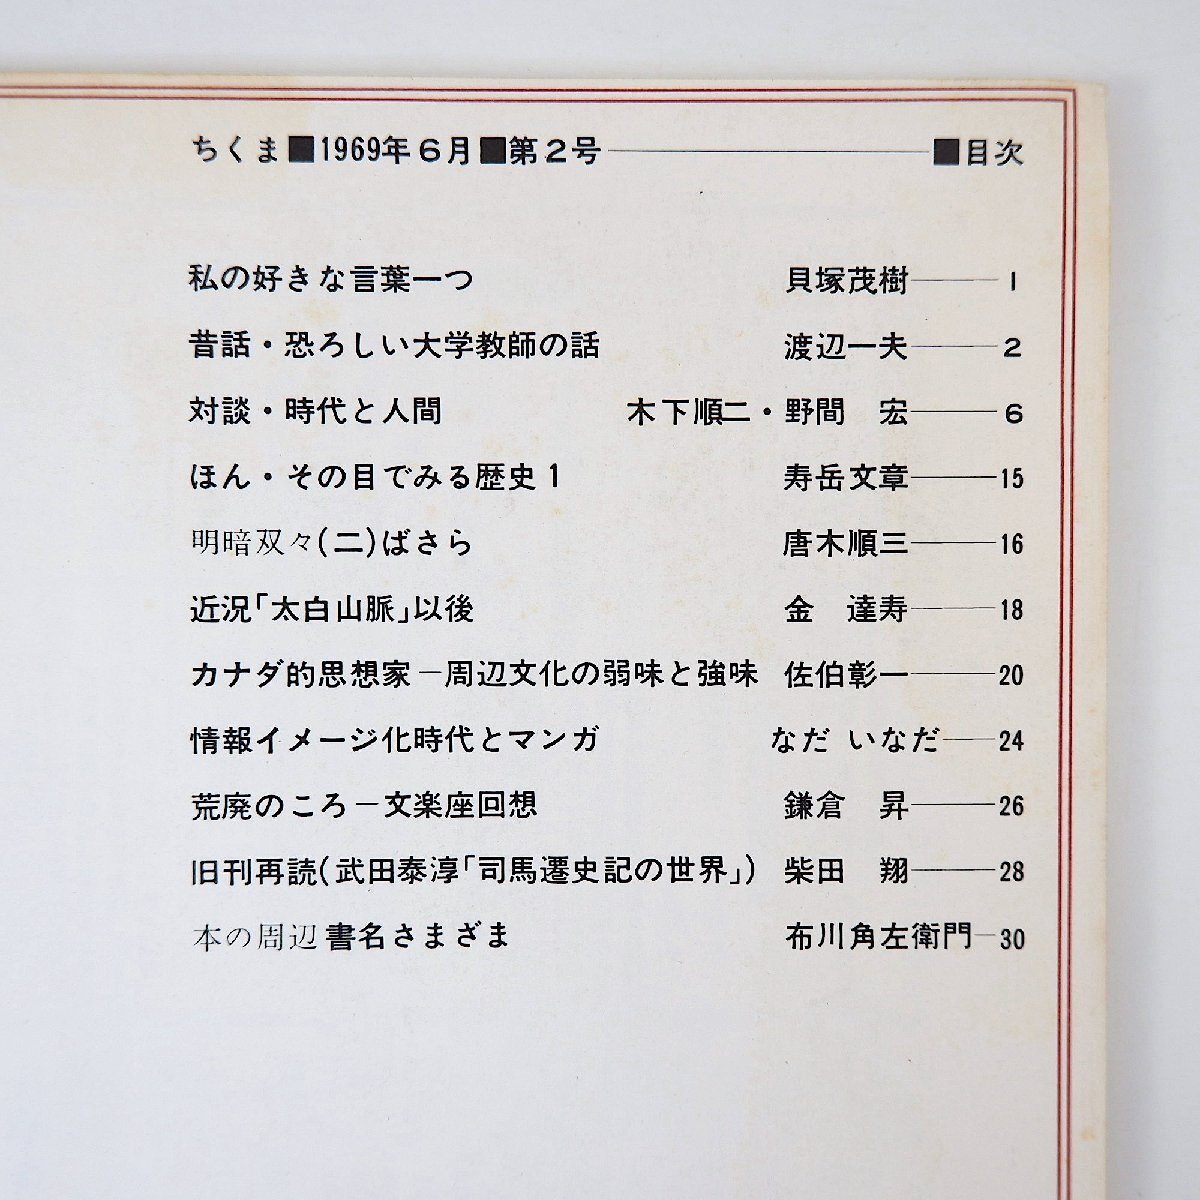 ちくま■1969年6月■第2号―――■目次
私の好きな言葉一つ 貝塚茂樹――1
昔話・恐ろしい大学教師の話 渡辺一夫――2
対談・時代と人間 木下順二・野間 宏――6
ほん・その目でみる歴史1 寿岳文章――15
明暗双々(二)ばさら 唐木順三――16
近況「太白山脈」以後 金 達寿――18
カナダ的思想家―周辺文化の弱味と強味 佐伯彰一――20
情報イメージ化時代とマンガ なだ いなだ――24
荒廃のころ―文楽座回想 鎌倉 昇――26
旧刊再読(武田泰淳「司馬遷史記の世界」) 柴田 翔――28
本の周辺書名さまざま 布川角左衛門―30